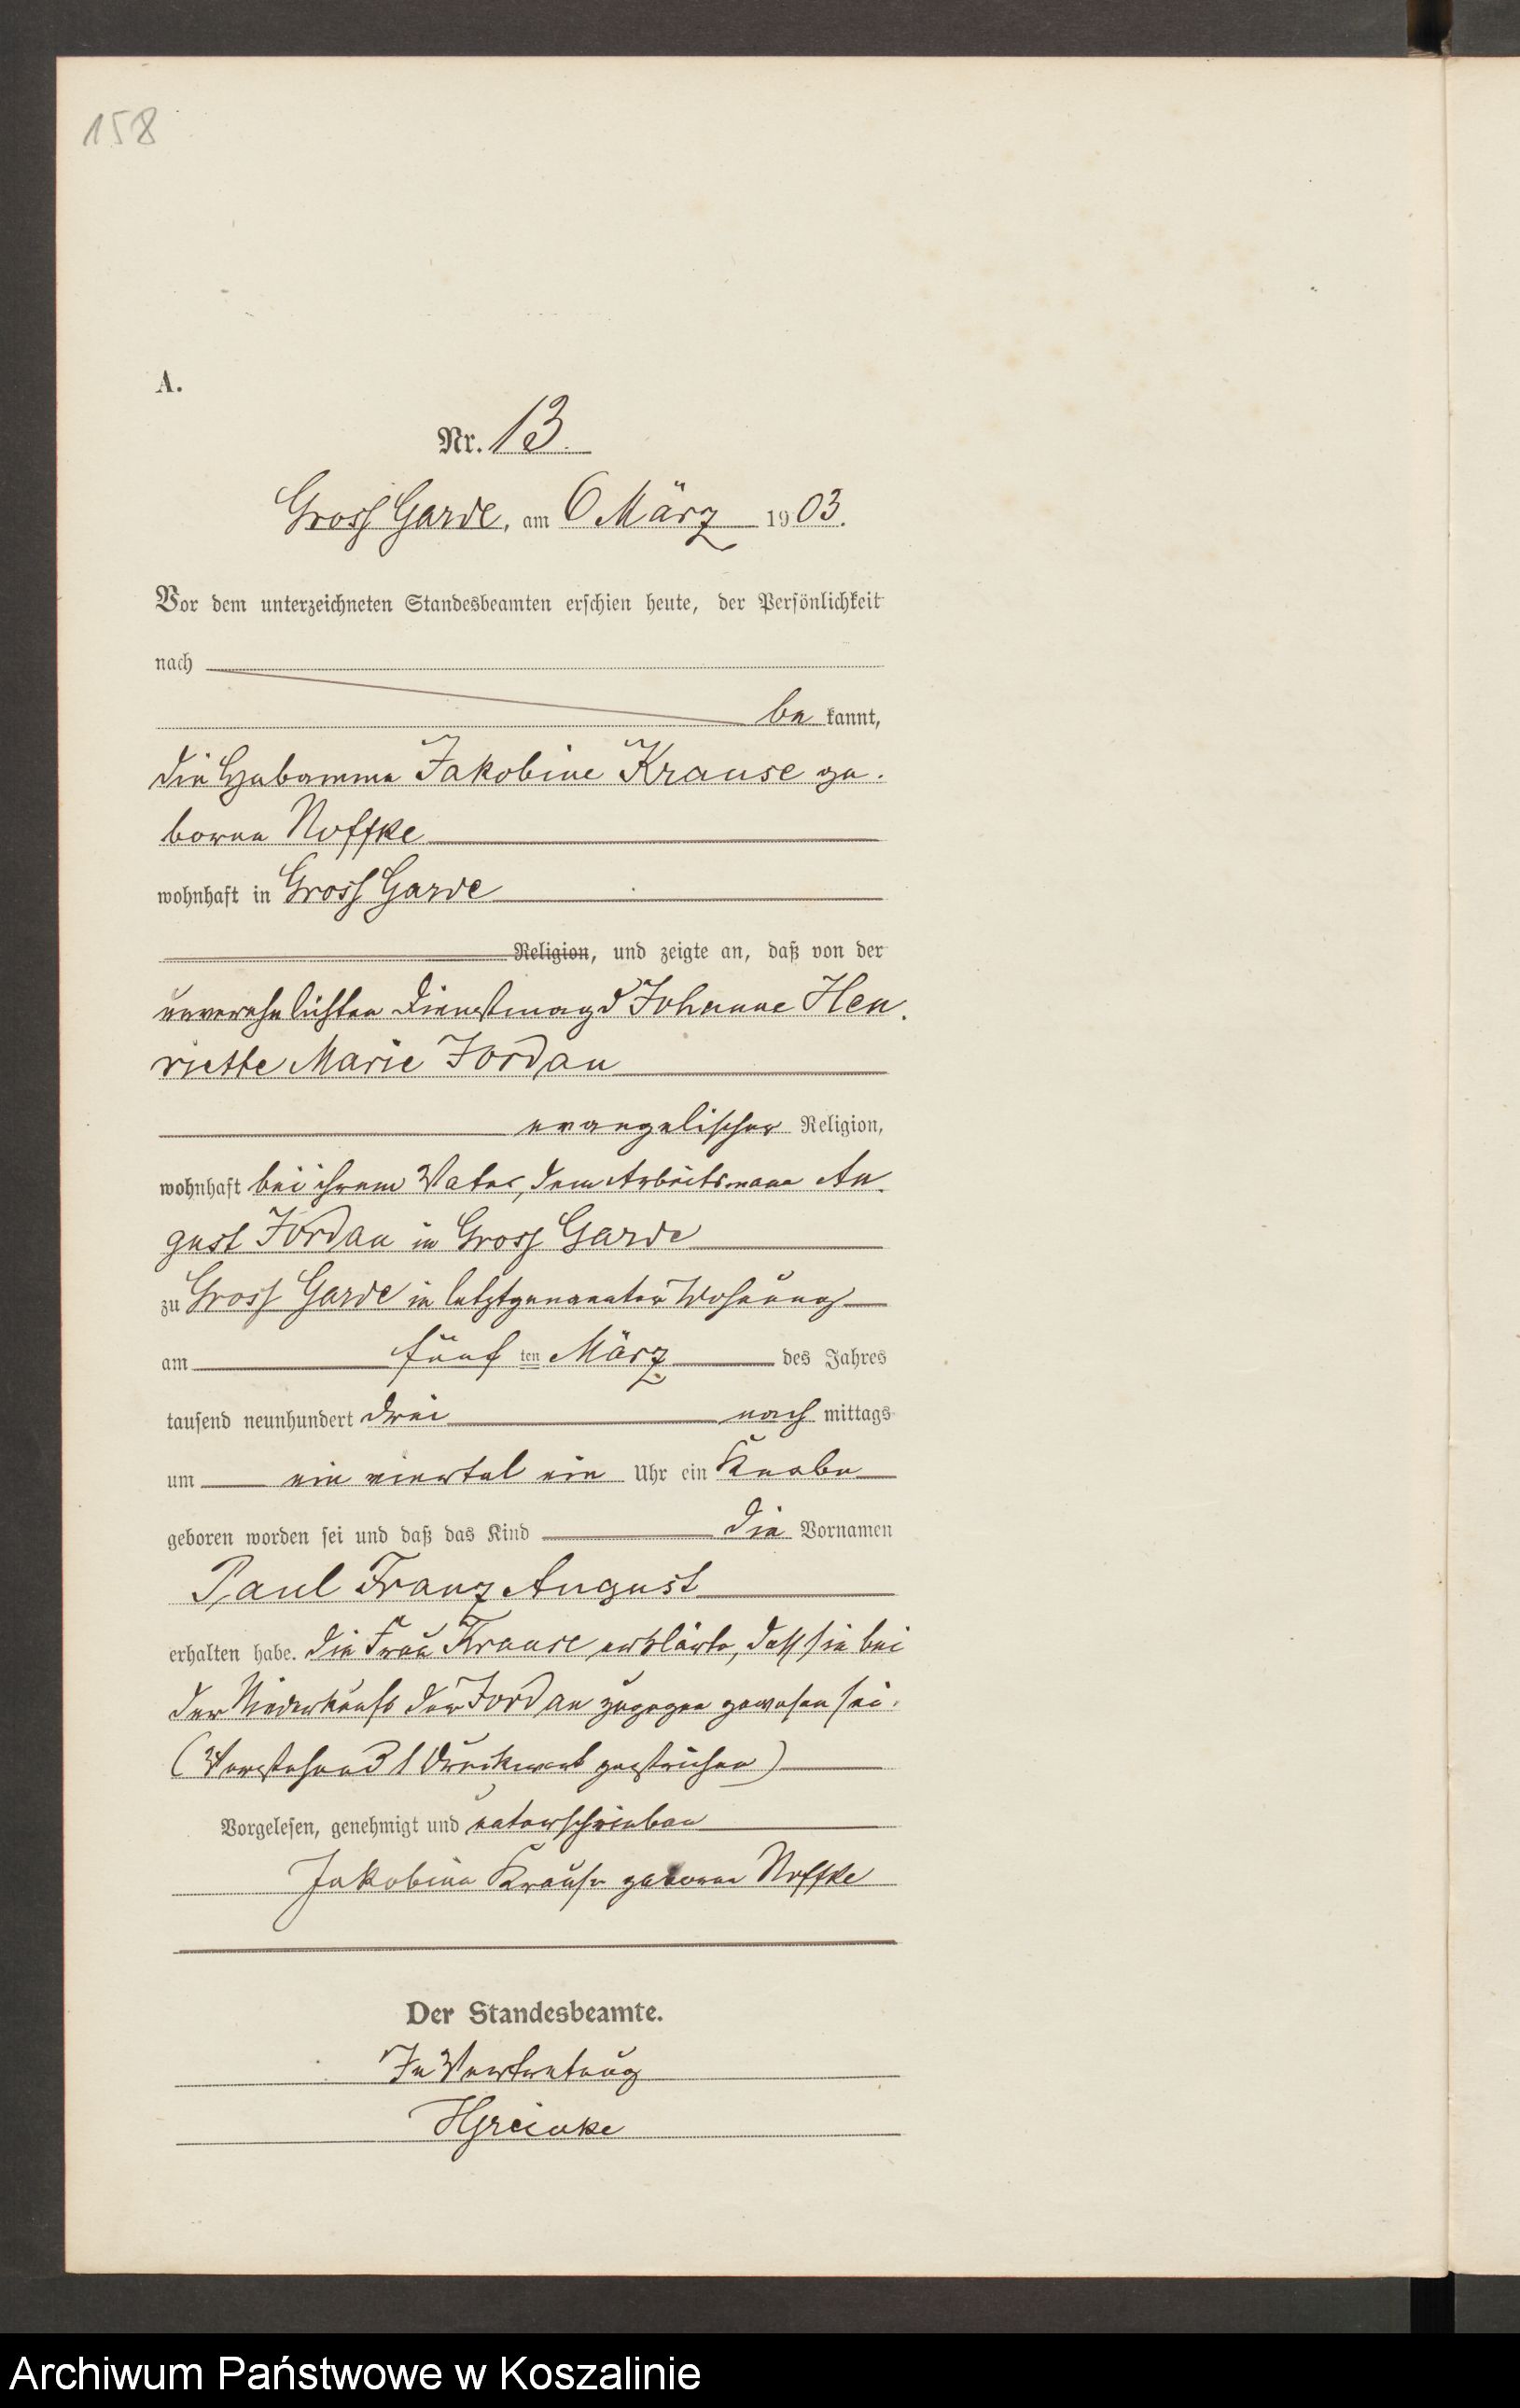 158
A.
Nr. 13.
Gross Garde, am 6 März 1903.
Vor dem unterzeichneten Standesbeamten erschien heute, der Persönlichkeit
nach
be kannt,
die Hebamme Jakobine Krause ge-
borne Noffke
wohnhaft in Gross Garde
Religion, und zeigte an, daß von der
unverehelichten Dienstmagd Johanne Hen-
riette Marie Jordan
evangelischer Religion,
wohnhaft bei ihrem Vater, dem Arbeitsmann Au-
gust Jordan in Gross Garde
zu Gross Garde in letztgenannter Wohnung
am fünf ten März des Jahres
tausend neunhundert drei nach mittags
um ein viertel ein Uhr ein Knabe
geboren worden sei und daß das Kind die Vornamen
Paul Franz August
erhalten habe. Die Frau Krause erklärte, dass sie bei
der Niederkunft der Jordan zugegen gewesen sei.
(Vorstehend 1 Druckwort gestrichen)
Vorgelesen, genehmigt und unterschrieben
Jakobine Krause geborne Noffke
Der Standesbeamte.
In Vertretung